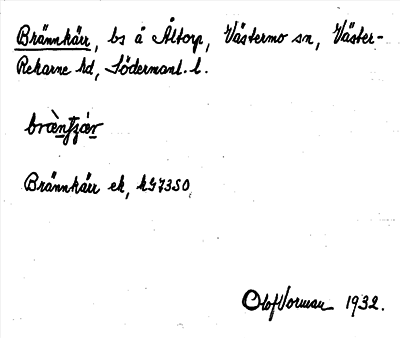 Brännkärr, bs å Åltorp, Västermo sn, Väster-
Rekarne hd, Södermanl. l.
Brännkärr ek, kG7350
Olof Vorman 1932.